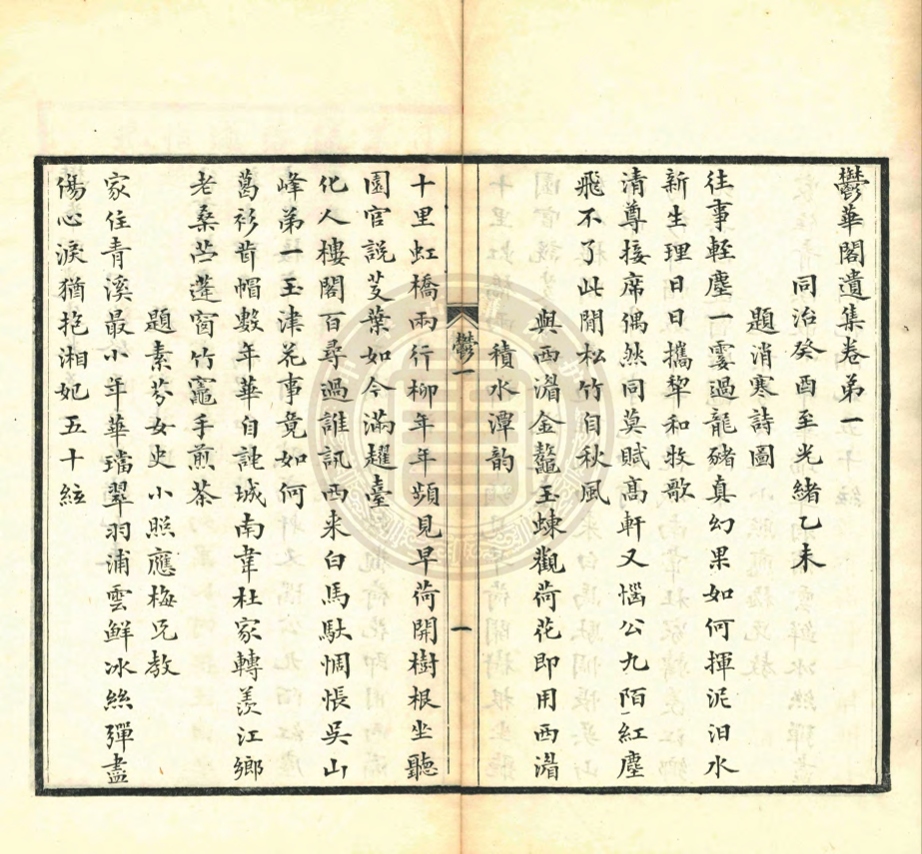 鬱華閣遺集卷第一
同治癸酉至光緒乙未
題消寒詩圖
往事輕塵一霎過龍豬真幻果如何揮泥汩水
新生理日日攜犂和牧歌
清尊接席偶然同莫賦高軒又惱公九陌紅塵
飛不了此閒松竹自秋風
與西潽金鼇玉蝀觀荷花即用西潽
積水潭韵
鬱一
一
十里虹橋兩行柳年年頻見早荷開樹根坐聽
園官說芟葉如今滿趯臺
化人樓閣百尋過誰訊西来白馬馱惆悵吳山
峰弟一玉津花事竟如何
葛衫苖帽數年華自詫城南韋杜家轉羡江鄉
老桑苎蓬窗竹竈手煎茶
題素芬女史小照應梅兄教
家住青溪最小年華璫翠羽浦雲鮮冰絲彈盡
傷心淚猶抱湘妃五十絃